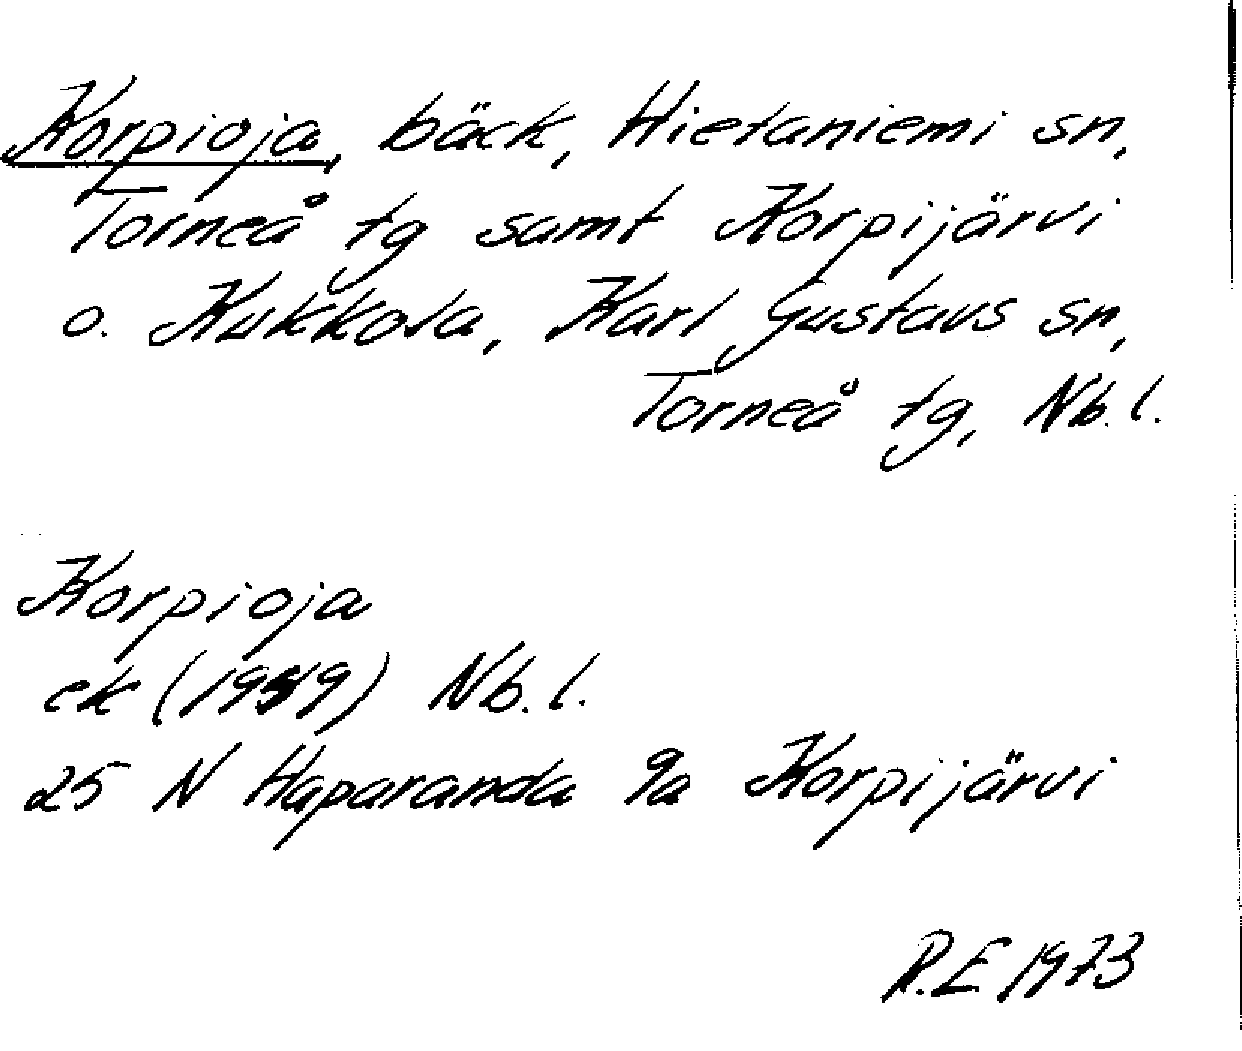 Korpioja, bäck, Hietaniemi sn,
Torneå tg samt Korpijärvi
o. Kukkola, Karl Gustavs sn,
Torneå tg, Nb. l.
Korpioja
ek (1949) Nb. l.
25 N Haparanda 9a Korpijärvi
R.E 1973